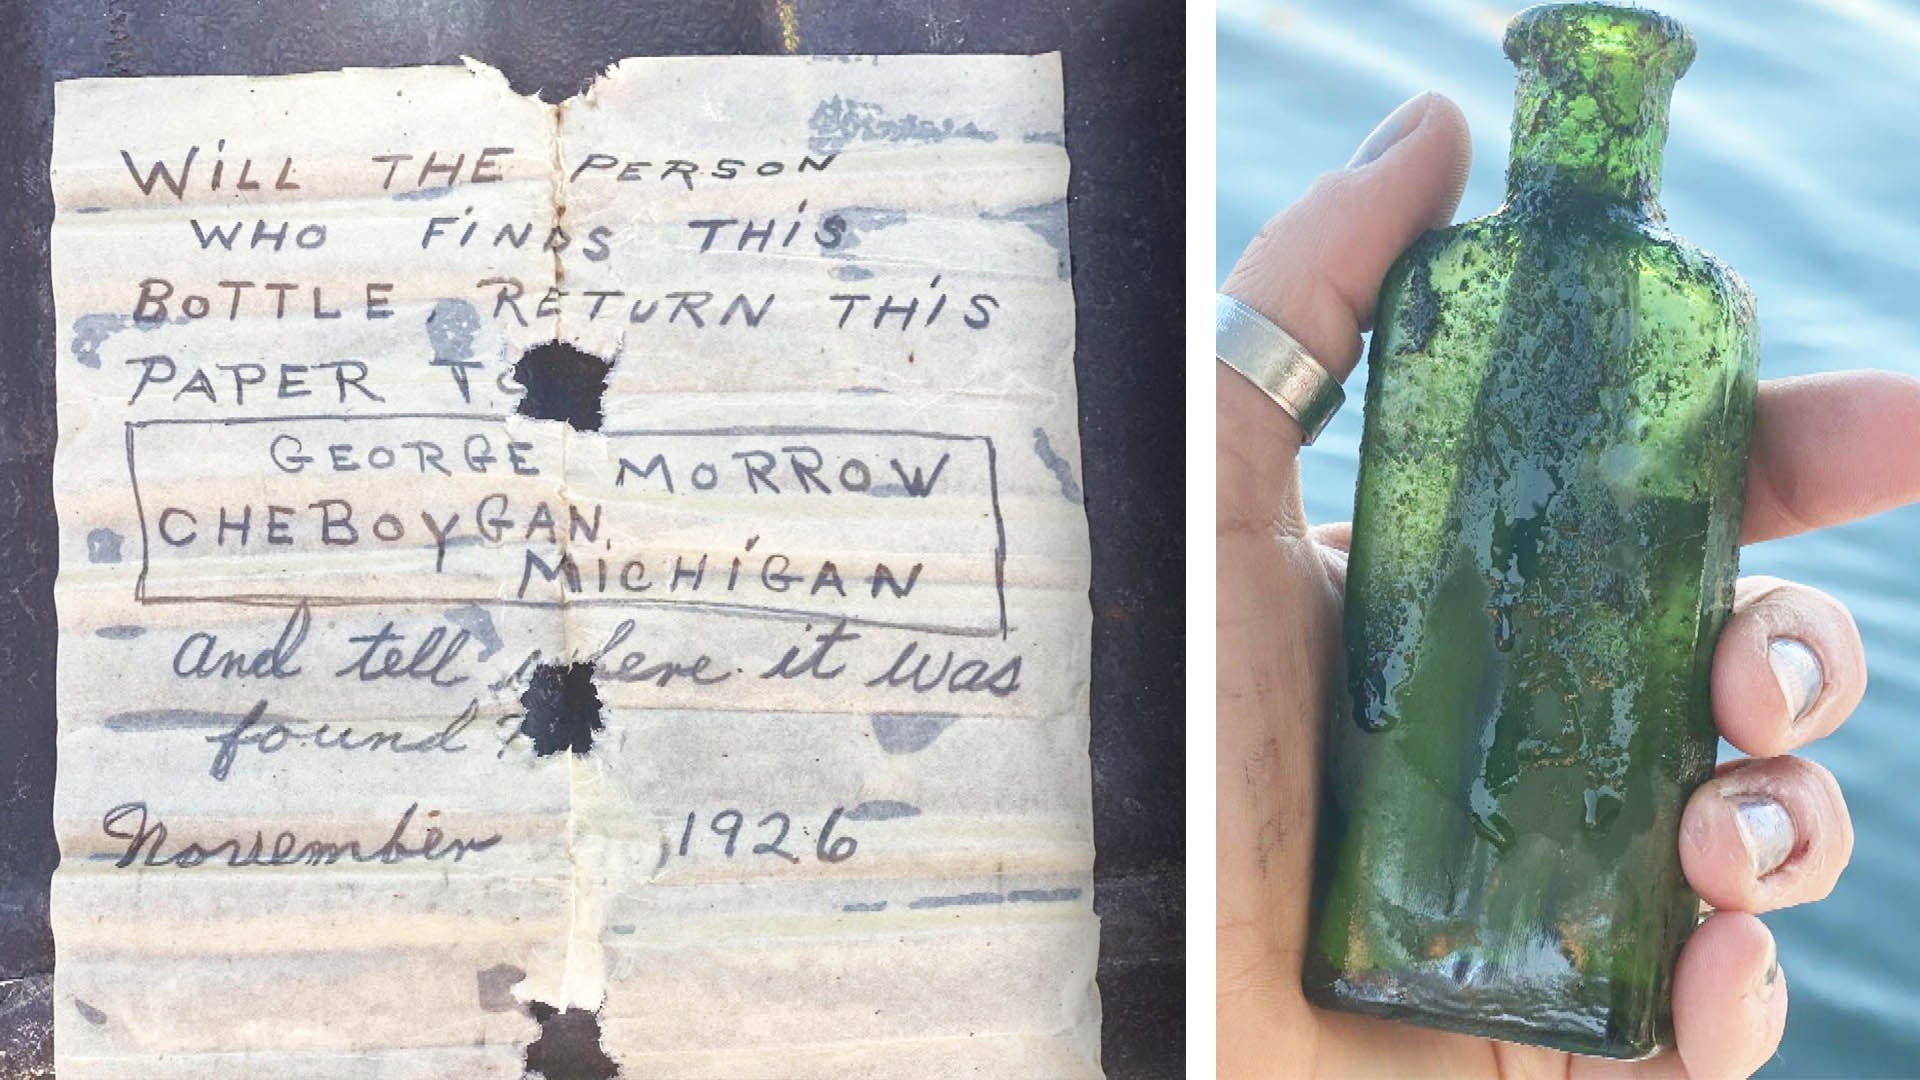 WILL THE PERSON
WHO FINDS THIS
BOTTLE, RETURN THIS
PAPER TO
GEORGE MORROW
CHEBOYGAN,
MICHIGAN
and tell where it was
found?
November , 1926